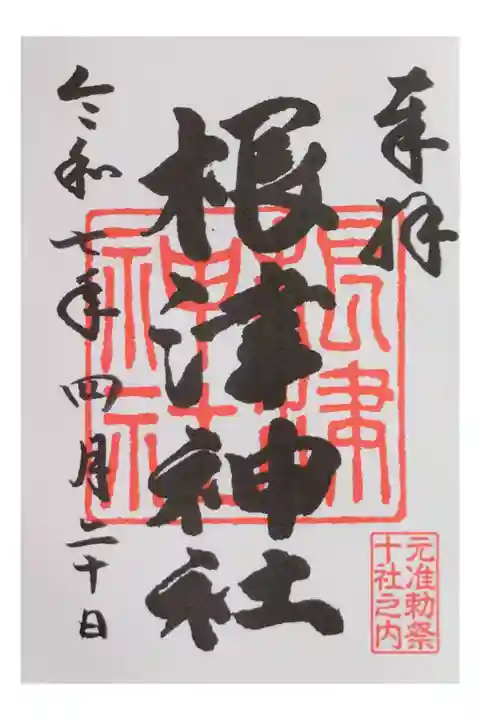 奉拝
根津神社
令和七年四月二十日
根津
神社
元准勅祭
十社之内